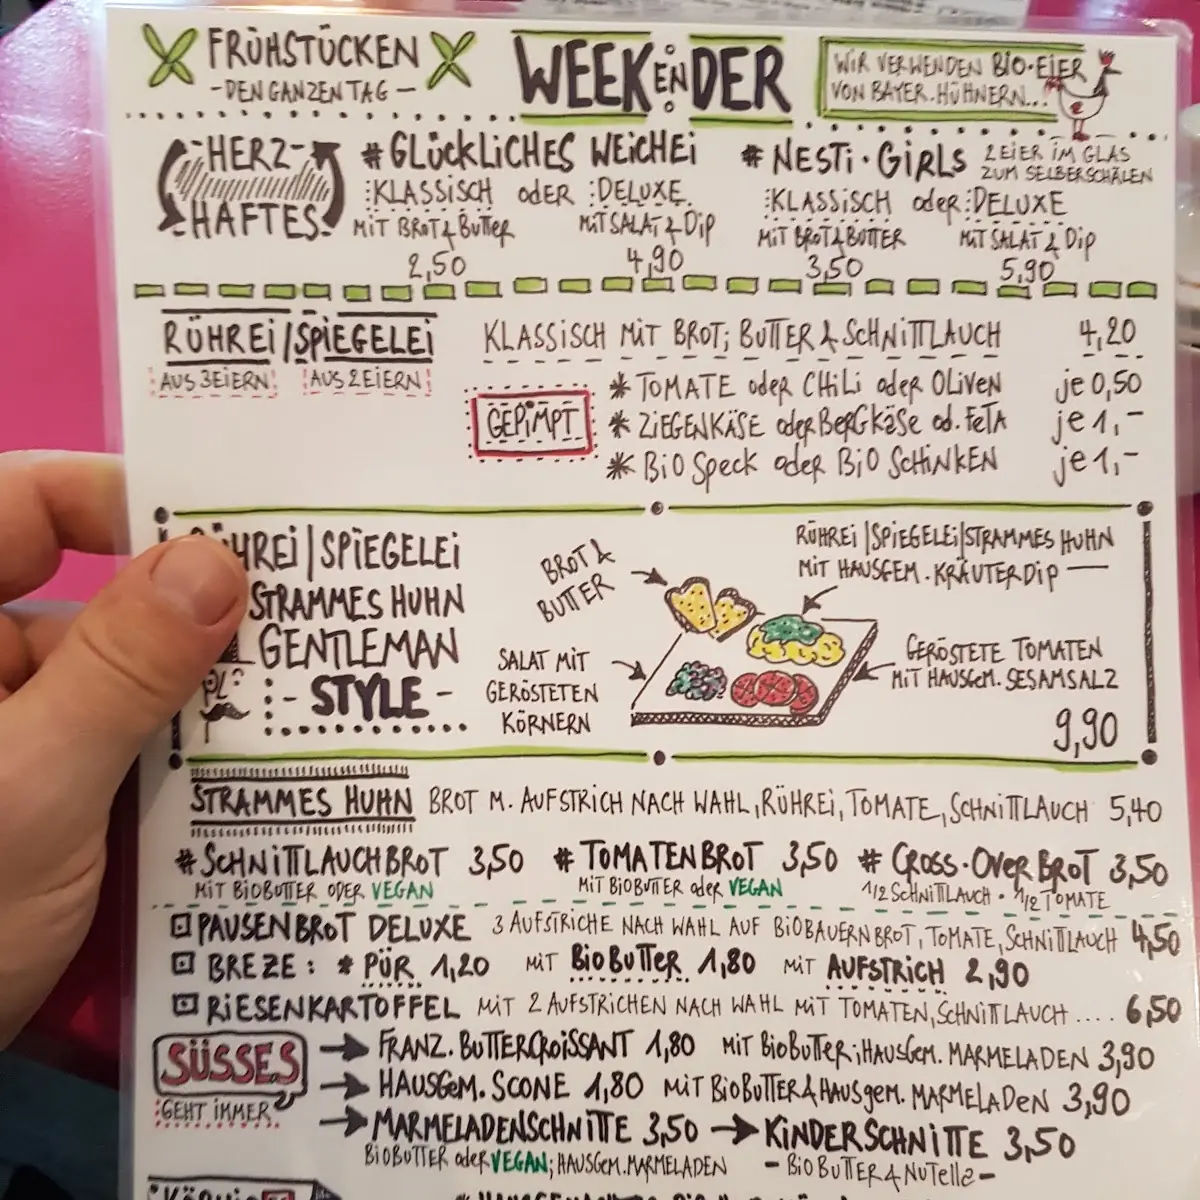 FRÜHSTÜCKEN
-DEN GANZEN TAG-
WEEKENDER
WIR VERWENDEN BIO-EIER
VON BAYER. HÜHNERN...
HERZ-
HAFTES
# GLÜCKLICHES WEICHEI
:KLASSISCH ODER :DELUXE
MIT BROT & BUTTER MIT SALAT & DIP
2,50 4,90
# NESTI · GIRLS 2 EIER IM GLAS
ZUM SELBERSCHÄLEN
:KLASSISCH ODER :DELUXE
MIT BROT & BUTTER MIT SALAT & DIP
3,50 5,90
RÜHREI/SPIEGELEI KLASSISCH MIT BROT; BUTTER & SCHNITTLAUCH 4,20
AUS 3 EIERN AUS 2 EIERN
GEPIMPT
* TOMATE ODER CHILI ODER OLIVEN je 0,50
* ZIEGENKÄSE ODER BERGKÄSE OD. FETA je 1,-
* BIO SPECK ODER BIO SCHINKEN je 1,-
RÜHREI | SPIEGELEI
STRAMMES HUHN
GENTLEMAN
- STYLE -
BROT &
BUTTER
RÜHREI | SPIEGELEI | STRAMMES HUHN
MIT HAUSGEM. KRÄUTERDIP
SALAT MIT
GERÖSTETEN
KÖRNERN
GERÖSTETE TOMATEN
MIT HAUSGEM. SESAMSALZ
9,90
STRAMMES HUHN BROT M. AUFSTRICH NACH WAHL, RÜHREI, TOMATE, SCHNITTLAUCH 5,40
# SCHNITTLAUCHBROT 3,50 # TOMATENBROT 3,50 # CROSS·OVER BROT 3,50
MIT BIOBUTTER ODER VEGAN MIT BIOBUTTER ODER VEGAN 1/2 SCHNITTLAUCH · 1/2 TOMATE
PAUSENBROT DELUXE 3 AUFSTRICHE NACH WAHL AUF BIOBAUERNBROT, TOMATE, SCHNITTLAUCH 4,50
BREZE: * PÜR 1,20 MIT BIOBUTTER 1,80 MIT AUFSTRICH 2,90
RIESENKARTOFFEL MIT 2 AUFSTRICHEN NACH WAHL MIT TOMATEN, SCHNITTLAUCH .... 6,50
SÜSSES
GEHT IMMER
FRANZ. BUTTERCROISSANT 1,80 MIT BIOBUTTER; HAUSGEM. MARMELADEN 3,90
HAUSGEM. SCONE 1,80 MIT BIOBUTTER & HAUSGEM. MARMELADEN 3,90
MARMELADENSCHNITTE 3,50 → KINDERSCHNITTE 3,50
BIOBUTTER ODER VEGAN; HAUSGEM. MARMELADEN - BIOBUTTER & NUTELLA -